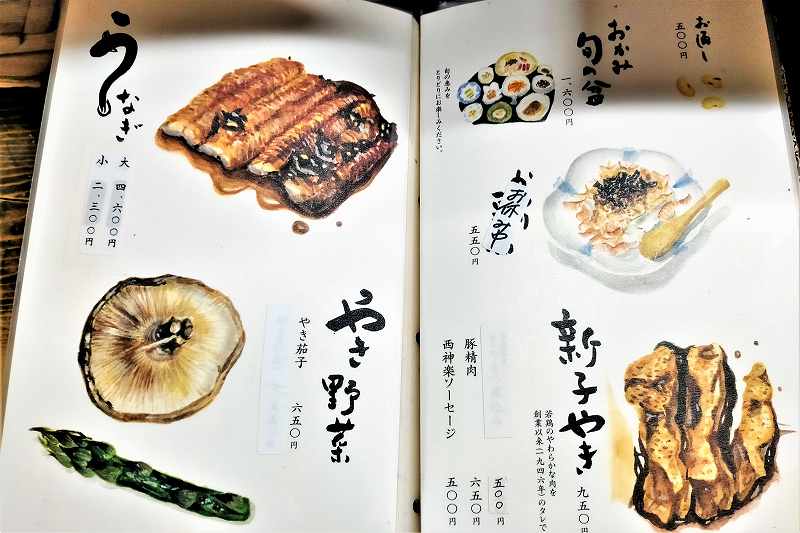 うなぎ
大 四、六〇〇円
小 二、三〇〇円
やき野菜
やき茄子 六五〇円
お通し
五〇〇円
おかみ
旬の盆
一、六〇〇円
旬の恵みを
とりどりにお楽しみください。
五五〇円
新子やき
九五〇円
若鶏のやわらかな肉を
創業以来(一九四六年)のタレで
五〇〇円
豚精肉 六五〇円
西神楽ソーセージ 五〇〇円